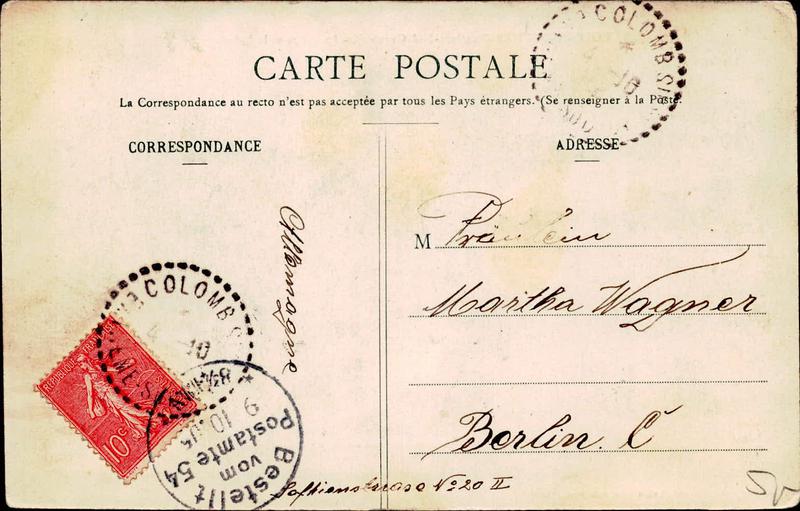 CARTE POSTALE
La Correspondance au recto n'est pas acceptée par tous les Pays étrangers. (Se renseigner à la Poste.
CORRESPONDANCE
ADRESSE
Allemagne
M Fräulein
Martha Wagner
Berlin. C
No 20 II
COLOMB
10
COLOMB
4 10
RÉPUBLIQUE FRANÇAISE
10c
9 10
Bestellt
vom
Postamte 54